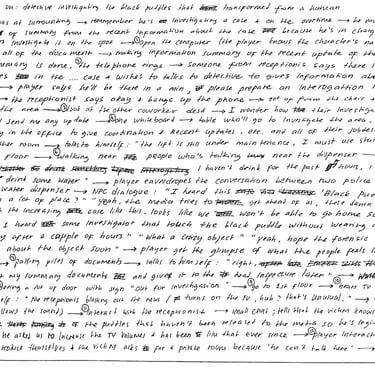 on: detective investigating the black puddles that transformed from a human
was at something → remember he's investigating a case & on the overtime → he mu
of summary from the recent information about the case because he's in charg
n investigate it on the spot → open the computer (let player know the character's na
all of the documents → making information summary of the recent update of the
ummary is done, the telephone rings → someone from receptionis says there i
es in the .... case & wishes to talks to detective to gives information abo
→ player says he'll be there in a min, please prepare an interogattion r
the receptionist says okay & hangs up the phone → get up from the chair &
the area → look at his other coworker desk → I wonder how their investiga
l send me any update → the whiteboard → table who'll go to investigate the area.
y in the office to give coordination & recent updates. etc. and all of their jobdes.
ther room → talks to himself: "the lift is still under maintenance, I must use stai
floor → walking near people who's talking near the dispenser
I haven't drink for the past hours, i
drink some water" → player eavesdrops the conversation between two police
water dispenser → NPC dialogue: "I heard this "Black pud
n a lot of place?" "yeah, the media tries to get ahead of us, these damn
h the increasing case like this, looks like we won't be able to go home so
I heard some investigator that touch the black puddle without wearing a
ng after a couple of hours" "What a crazy object" "yeah, hope the forensic
about the object soon" → player get the glimpse of what the people said
→ patting piles of documents → talks to himself: "right,
t my summary documents and gives it to the head inspector later" →
ering a lot of door with sign "out for investigation" → go to 1st floor → hears TV
elf: "the receptionis blasting out the news / turns on the TV, huh? that's unusual." →
llows the sound) → interact with the receptionist → small chat; tells that the victim knows
of the puddles that haven't been released to the media so he's legi
he asks us to increase the TV volumes & has been like that ever since → player interact
troduce themselves & the victim asks for a private room because he "can't talk here" →